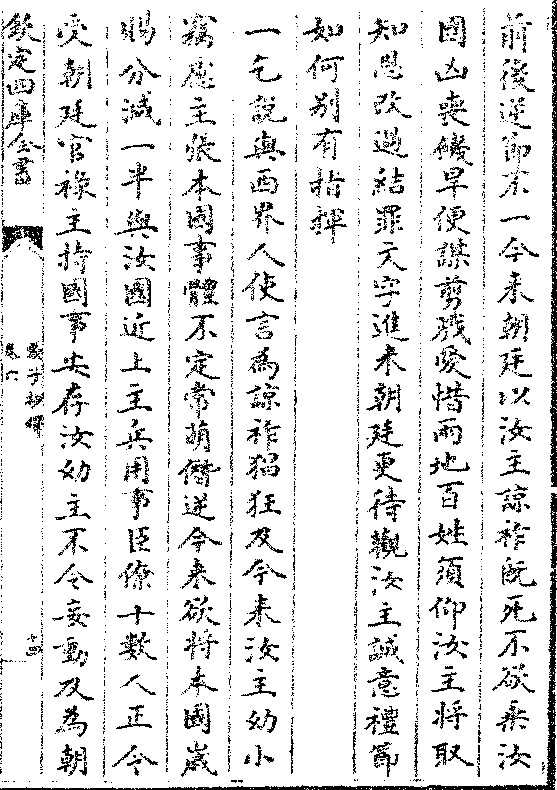 前後逆節不一今来朝廷以汝主諒祚既死不欲乗汝
國凶喪饑旱便謀剪殘愛惜兩地百姓須仰汝主将取
知恩改過結罪文字進来朝廷更待觀汝主誠意禮節
如何别有指揮
一乞說與西界人使言為諒祚猖狂及今来汝主幼小
竊慮主張本國事體不定常萌僭逆今来欲将本國歲
賜分減一半與汝國近上主兵用事臣僚十數人正令
受朝廷官祿主持國事安存汝幼主不令妄動及為朝
欽定四庫全書
卷六